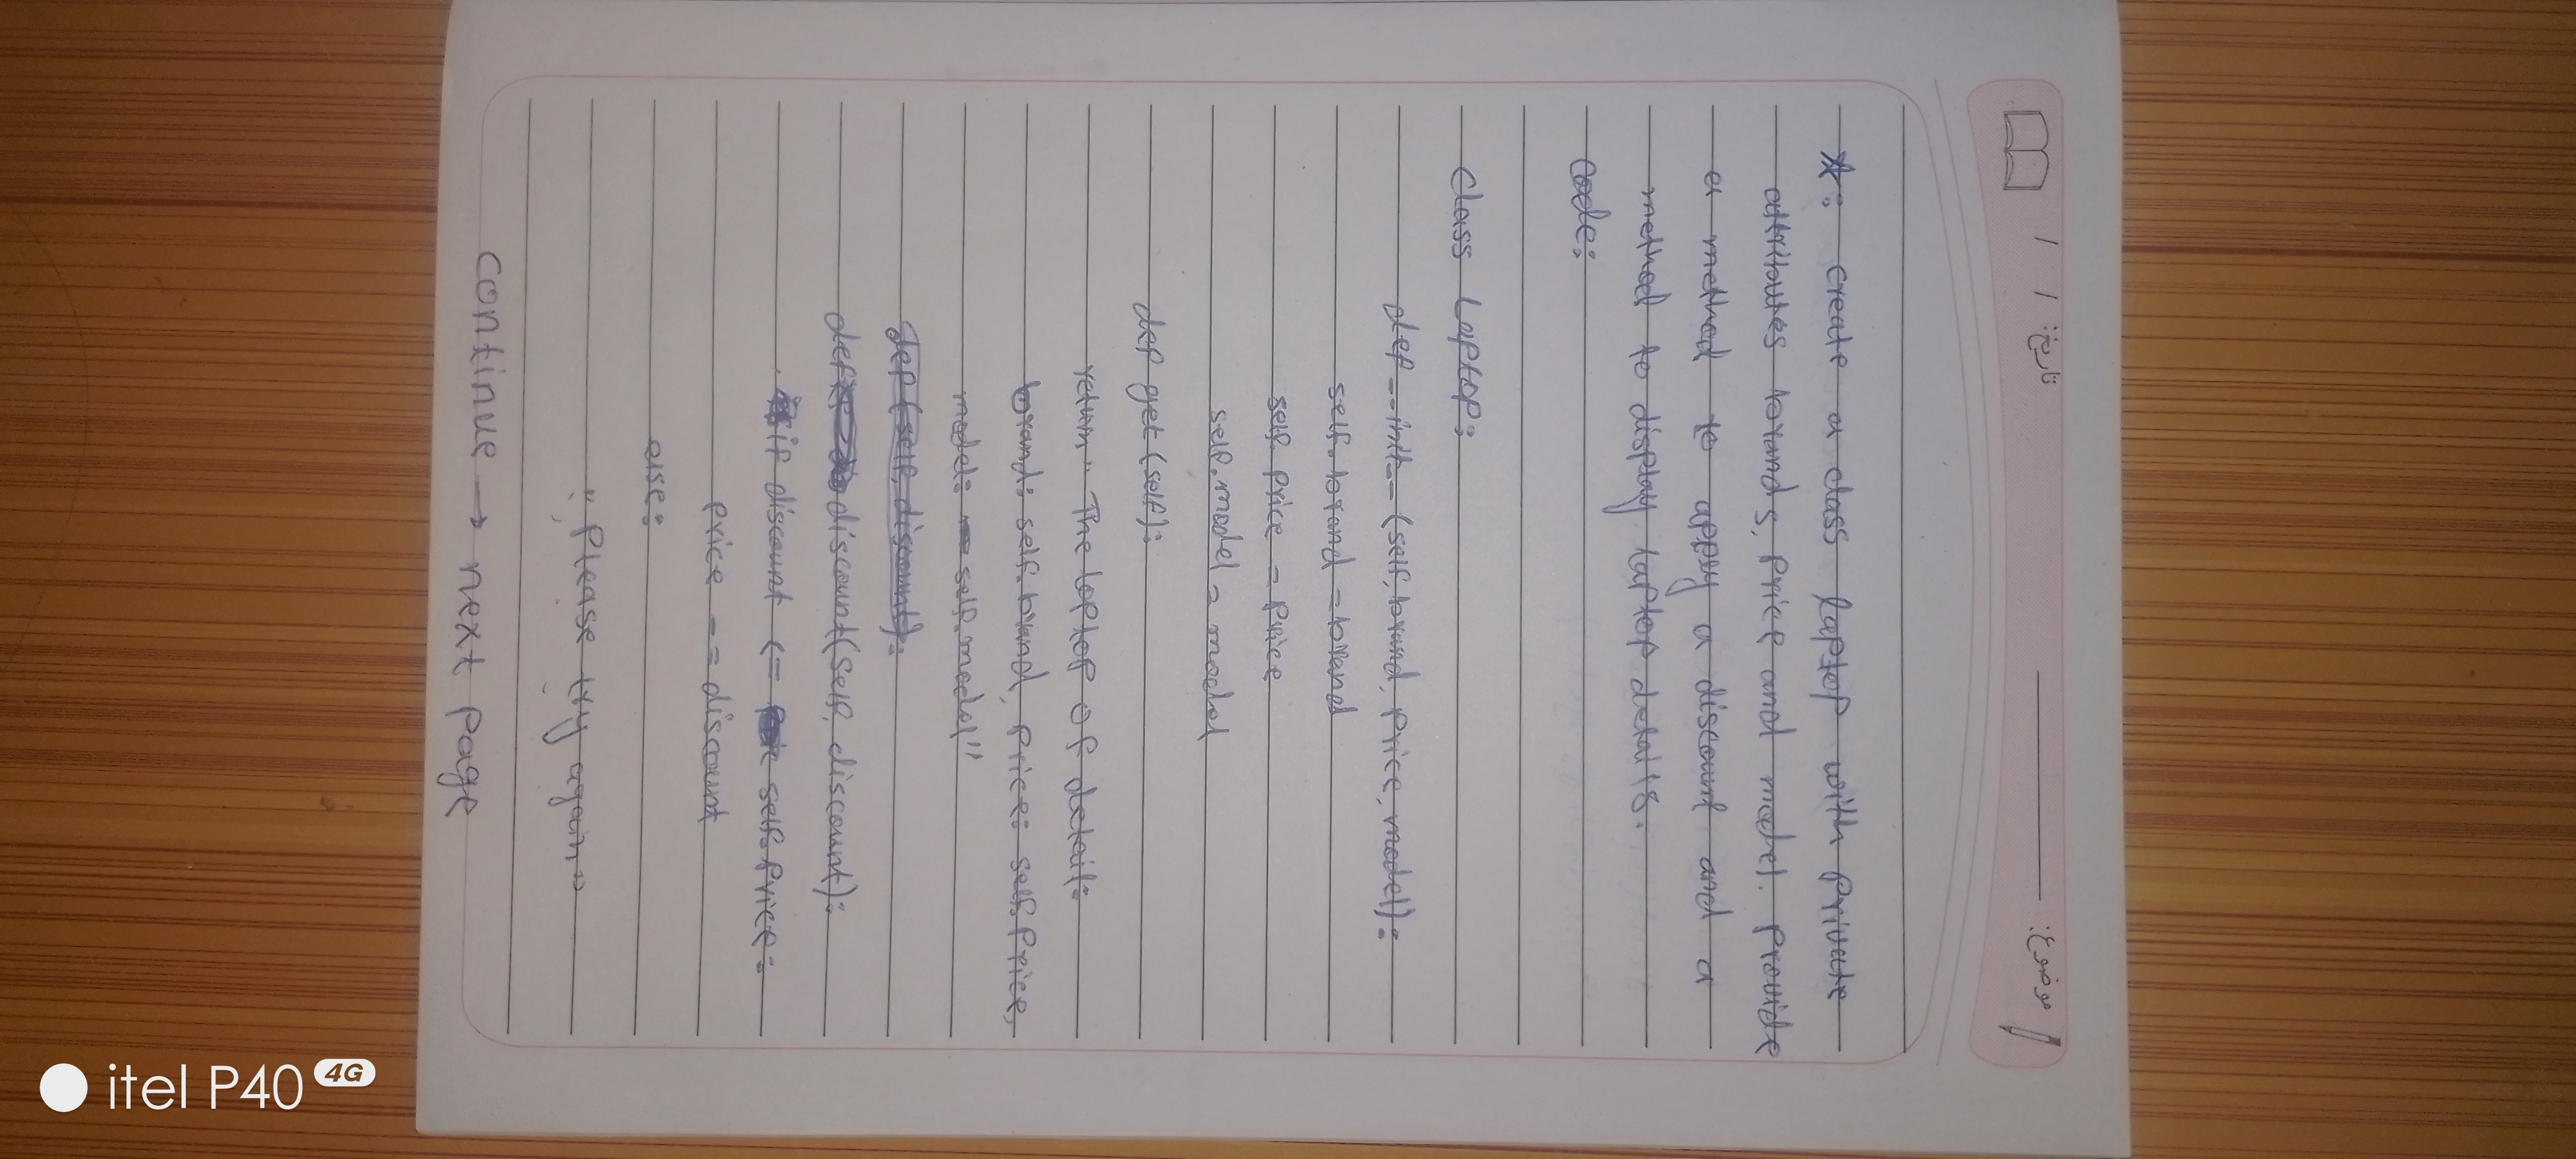 تاریخ: / /
موضوع:
*: create a class laptop with private
attributes brands, price and model. provide
a method to appy a discount and a
method to display laptop details.
Code:
class Laptop:
def __init__(self, brand, price, model):
self.brand = brand
self.price = price
self.model = model
def get(self):
return "The loptop of detail:
brand: self.brand, price: self.price,
model: self.model"
def(self, discount):
def discount(self, discount):
if discount <= self.price:
price -= discount
else:
"Please try again"
continue → next page
itel P40 4G